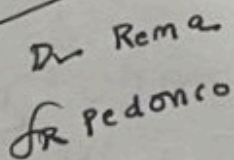 Dr Rema
SR Pedonco